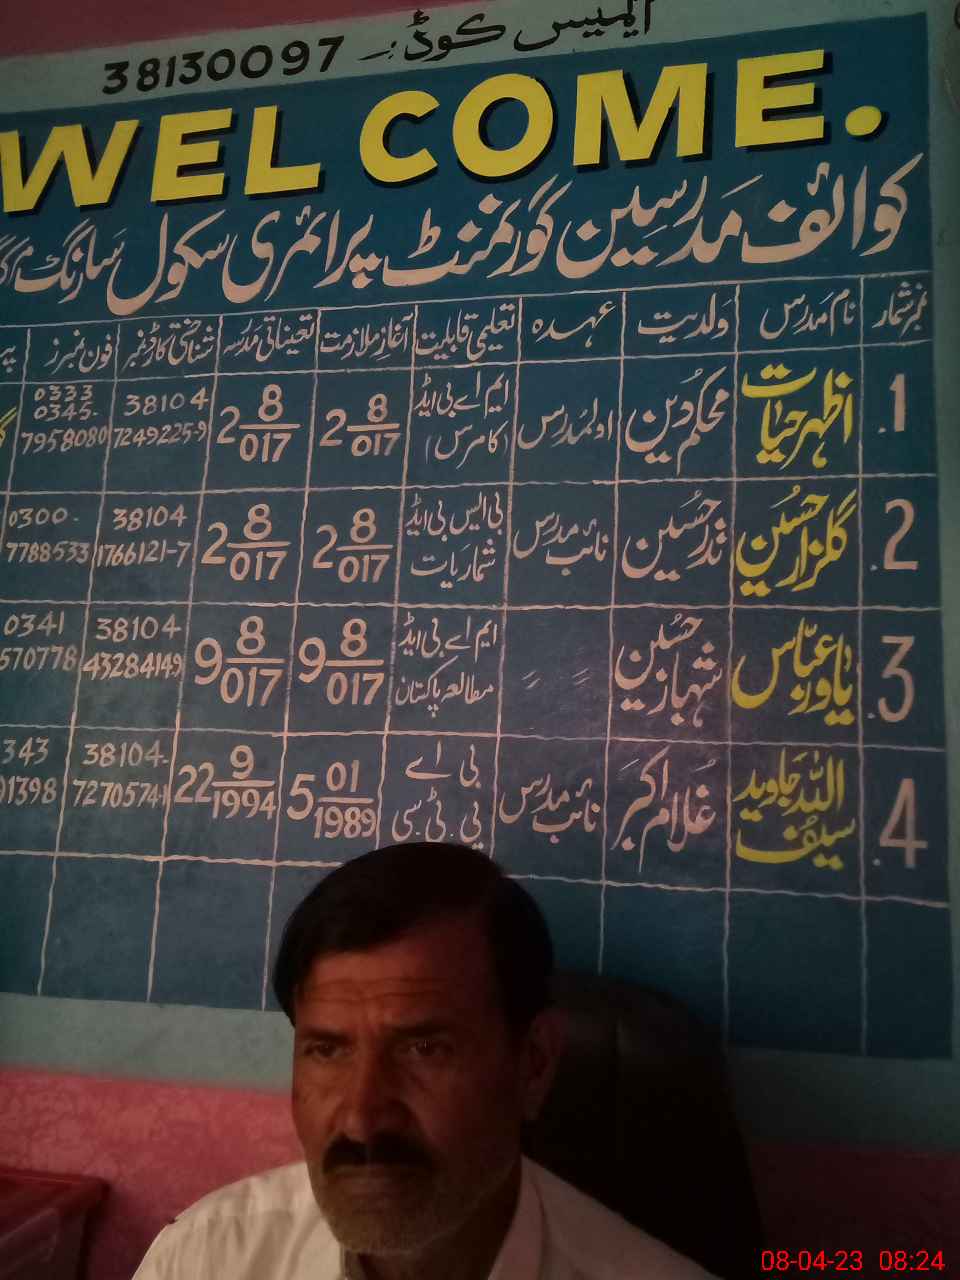 ایمیس کوڈ: 38130097
WEL COME.
کوائف مدرسین گورنمنٹ پرائمری سکول سارنگ
نمبر شمار نام مدرس ولدیت عہدہ تعلیمی قابلیت آغاز ملازمت تعیناتی مدرسہ شناختی کارڈ نمبر فون نمبرز
1. اظہر حیات محکم دین اول مدرس ایم اے بی ایڈ (کامرس) 2 8/017 2 8/017 38104 7249225-9 0333 0345- 7958080
2. گلزار حسین نذر حسین نائب مدرس بی ایس بی ایڈ شماریات 2 8/017 2 8/017 38104 1766121-7 0300- 7788533
3. یاور عباس شہباز حسین 〃 〃 ایم اے بی ایڈ مطالعہ پاکستان 9 8/017 9 8/017 38104 4328414-9 0341 570778
4. سیف اللہ جاوید غلام اکبر نائب مدرس بی اے پی.ٹی.سی 5 01/1989 22 9/1994 38104- 7270574-1 343 1398
08-04-23 08:24